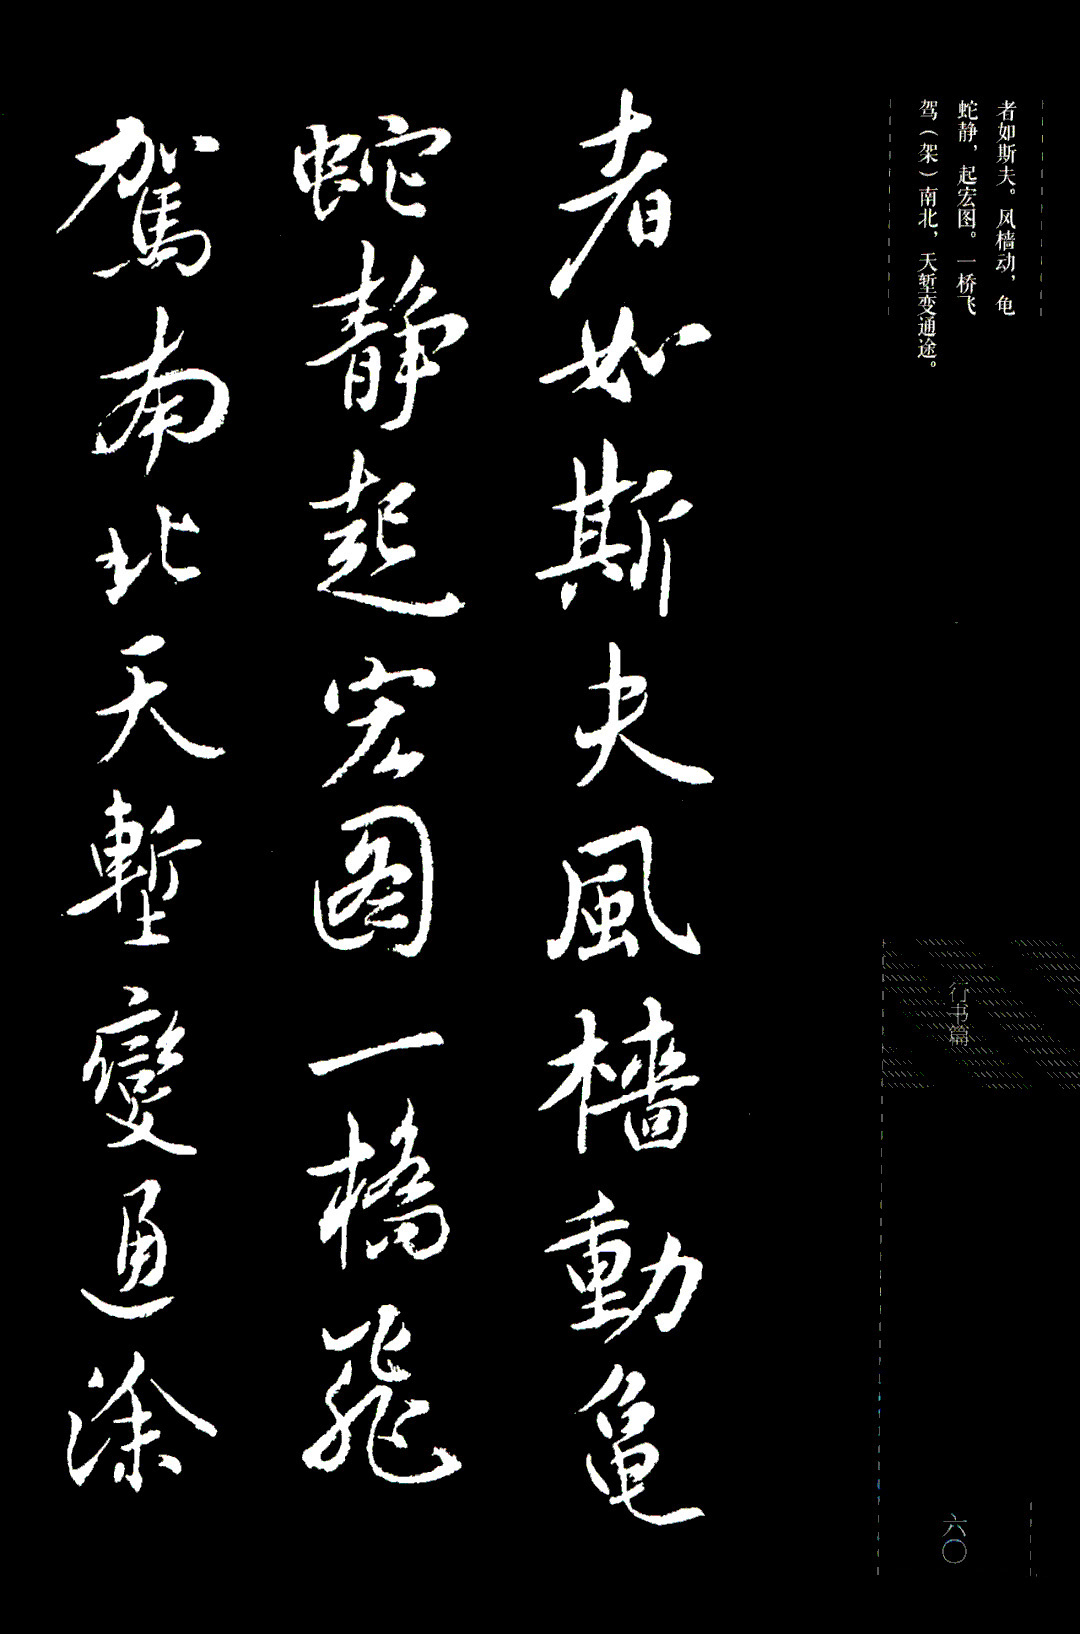 者如斯夫。风樯动，龟
蛇静，起宏图。一桥飞
驾（架）南北，天堑变通途。
者如斯夫風檣動龟
蛇静起宏图一橋飛
駕南北天塹變通涂
行书篇
六〇